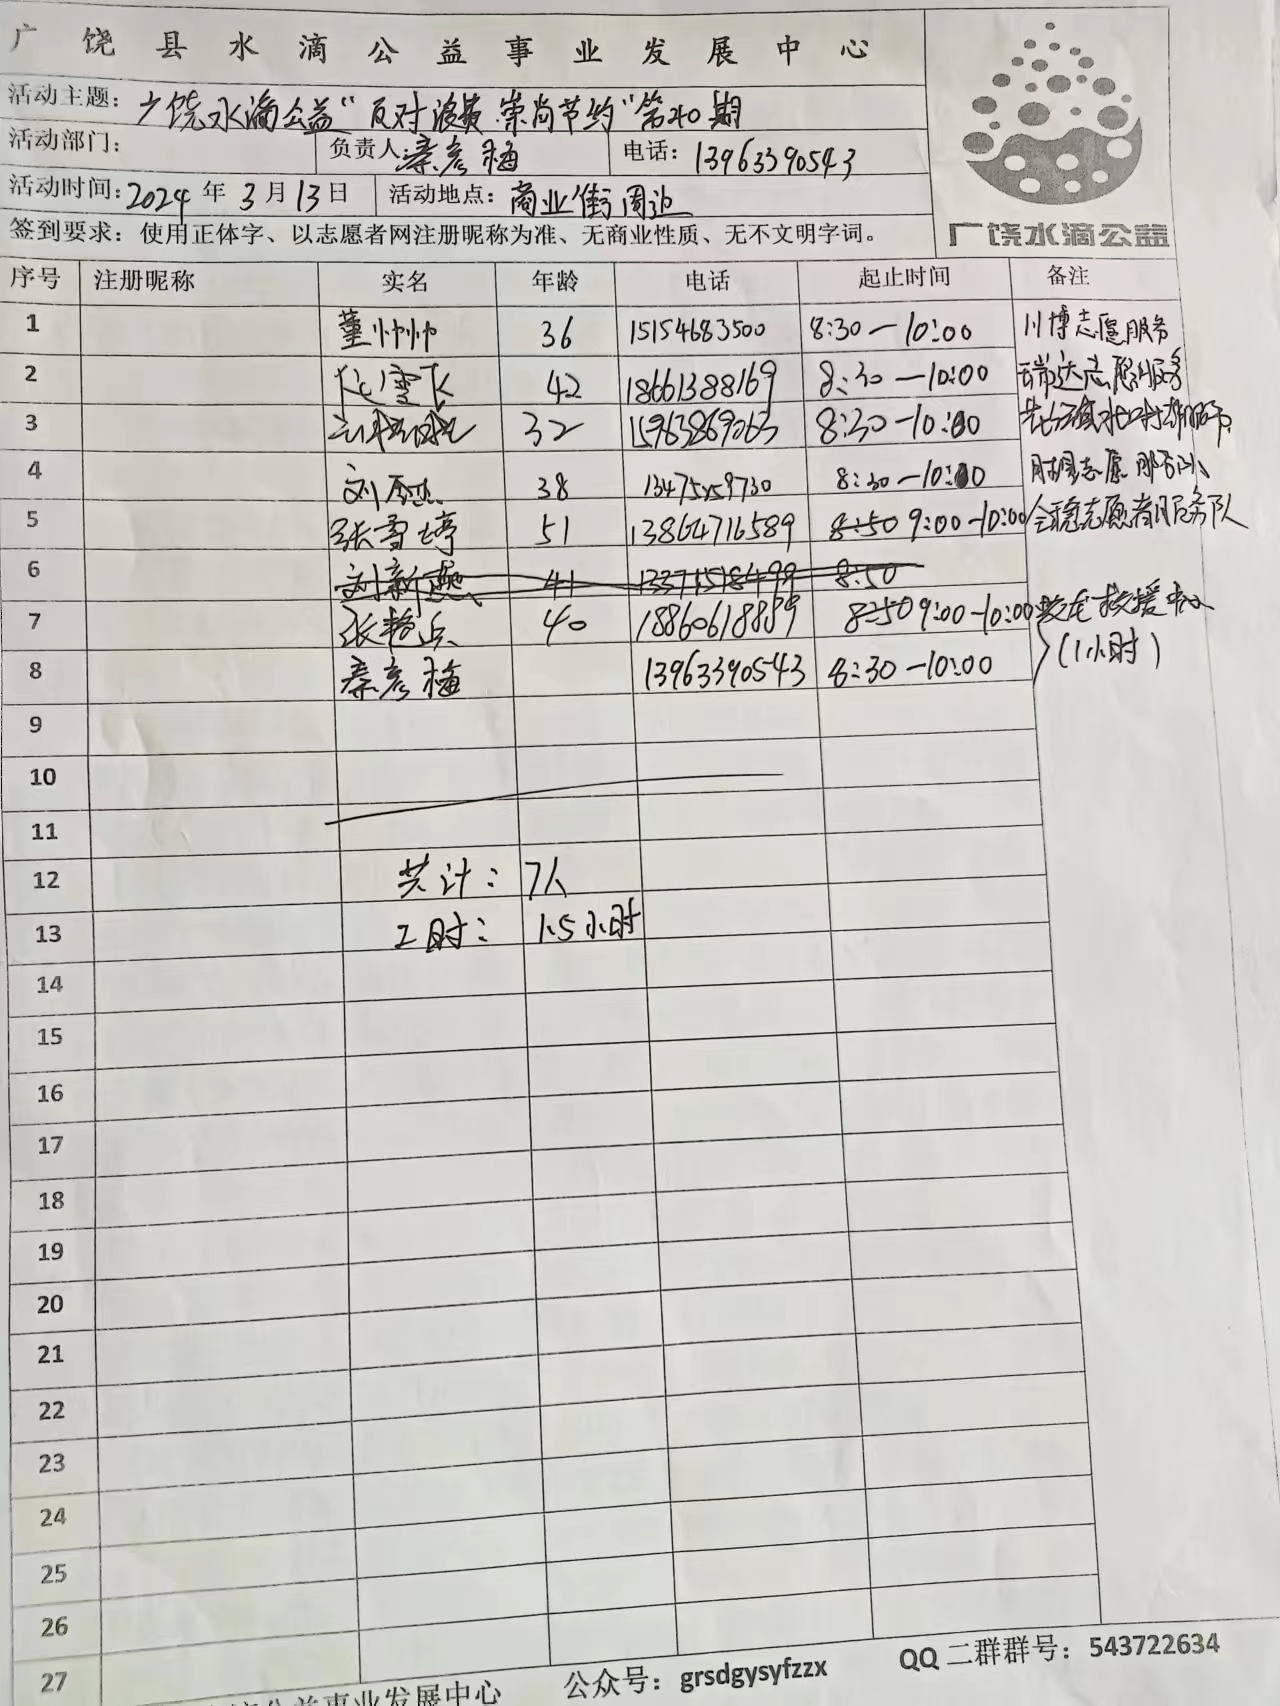 广饶县水滴公益事业发展中心
活动主题：广饶水滴公益“反对浪费 崇尚节约”第 期
活动部门： 负责人：秦彦梅 电话：13963390543
活动时间：2024年3月13日 活动地点：商业街周边
签到要求：使用正体字、以志愿者网注册昵称为准、无商业性质、无不文明字词。
广饶水滴公益
序号 注册昵称 实名 年龄 电话 起止时间 备注
1 董帅帅 36 15154683500 8:30—10:00 川博志愿服务
2 雪飞 42 18661388169 8:30—10:00 瑞达志愿服务
3 32 15963869063 8:30—10:00
4 刘 38 13475159730 8:30—10:00 志愿服务队
5 张雪婷 51 13864716589 8:50 9:00—10:00 会稳志愿者服务队
6 刘新燕 41 13371518499 8:50
7 张艳兵 40 18860618859 8:50 9:00—10:00 救援中心
(1小时)
8 秦彦梅 13963390543 8:30—10:00
9
10
11
12 共计： 7人
13 工时： 1.5小时
14
15
16
17
18
19
20
21
22
23
24
25
26
27
公益事业发展中心 公众号：grsdgysyfzzx QQ二群群号：543722634